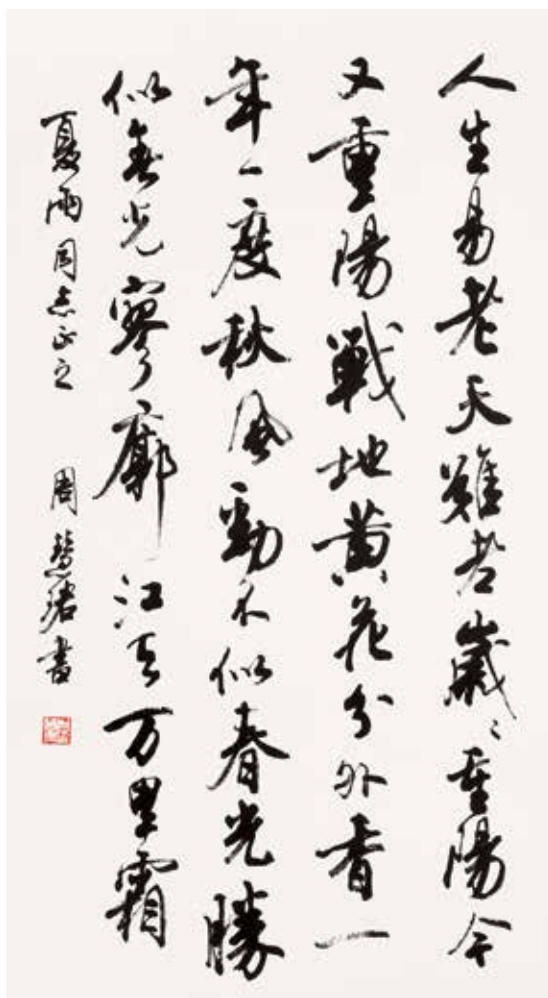 人生易老天難老歲〻重陽今
又重陽戰地黄花分外香一
年一度秋風勁不似春光勝
似春光寥廓江天万里霜
夏雨同志正之 周慧珺書